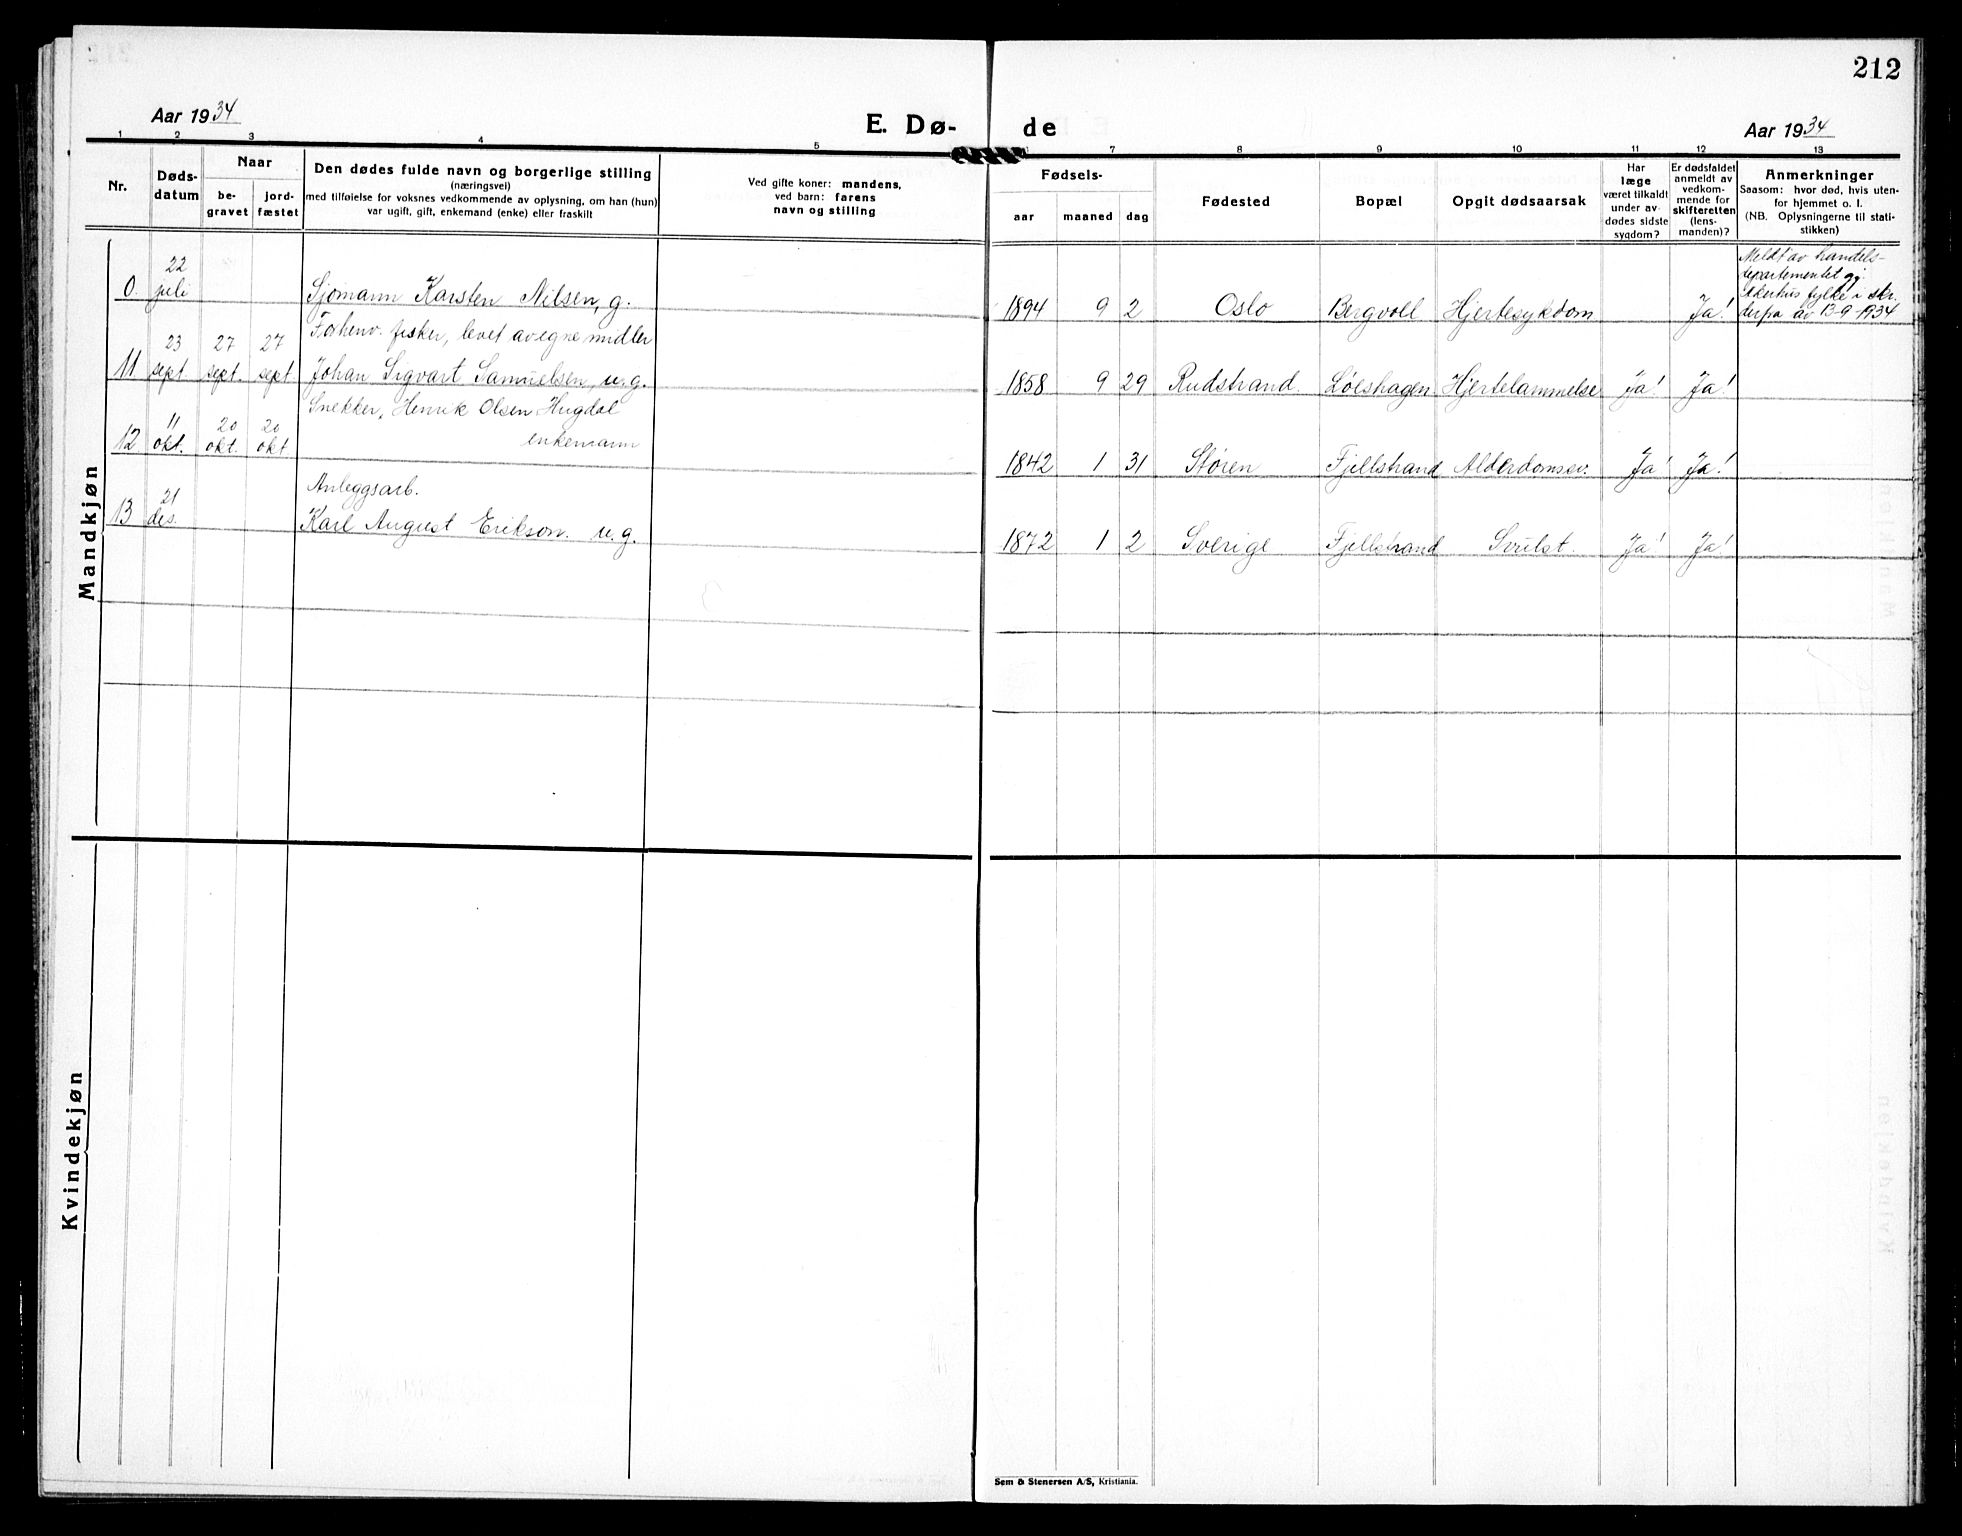 212
Aar 1934
E. Dø-
de
Aar 1934
1 2 3 4 5
7 8 9 10 11 12 13
Nr.
Døds-
datum
Naar
be-
gravet
jord-
fæstet
Den dødes fulde navn og borgerlige stilling
(næringsvei)
med tilføielse for voksnes vedkommende av oplysning, om han (hun)
var ugift, gift, enkemand (enke) eller fraskilt
Ved gifte koner: mandens,
ved barn: farens
navn og stilling
Fødsels-
aar
maaned
dag
Fødested
Bopæl
Opgit dødsaarsak
Har
læge
været tilkaldt
under av-
dødes sidste
sygdom?
Er dødsfaldet
anmeldt av
vedkom-
mende for
skifteretten
(lens-
manden)?
Anmerkninger
Saasom: hvor død, hvis uten-
for hjemmet o. l.
(NB. Oplysningerne til stati-
stikken)
Mandkjøn
0. 22 juli
Sjømann Karsten Nilsen, g.
1894 9 2 Oslo Bergvoll Hjertesykdom Ja!
Meldt av handels-
departementet gj.
Akerhus fylke i skr.
derfra av 13-9-1934
11 23 sept. 27 sept. 27 sept
Forhenv. fisker, levet av egne midler
Johan Sigvart Samuelsen, u.g.
1858 9 29 Rudstrand. Løeshagen Hjertelammelse Ja! Ja!
12 11 okt. 20 okt. 20 okt.
Snekker, Henrik Olsen Hugdal
enkemann
1842 1 31 Støren Fjellstrand Alderdomssv. Ja! Ja!
13 21 des.
Anleggsarb.
Karl August Erikson. u.g.
1872 1 2 Sverige Fjellstrand Svulst. Ja! Ja!
Kvindekjøn
Sem & Stenersen A/S, Kristiania.